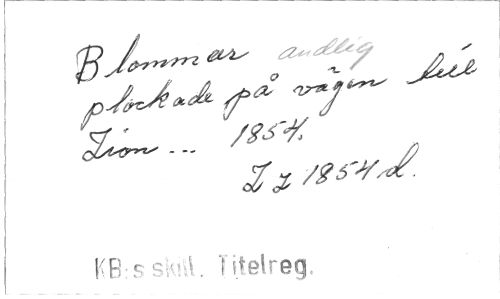 Blommor andlig
plockade på vägen till
Zion ... 1854.
Z z 1854 d.
KB:s skill. Titelreg.